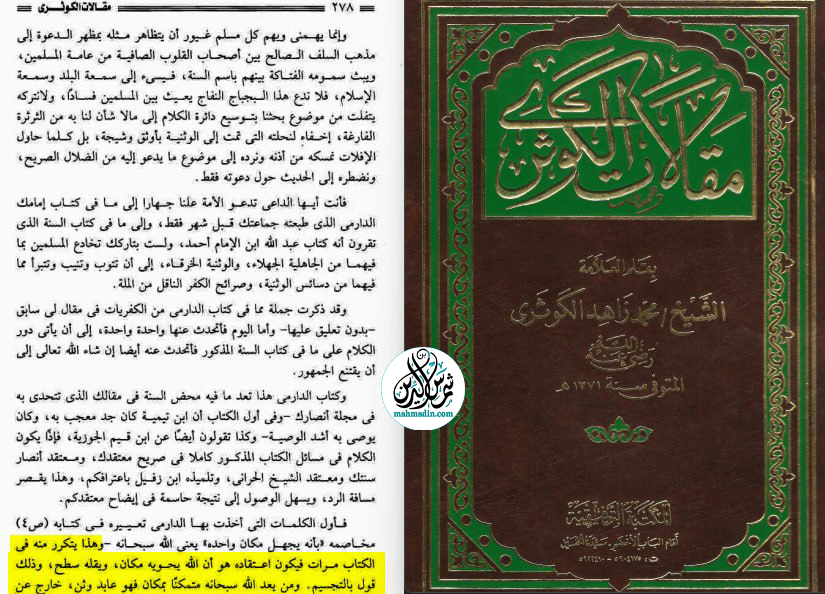 ٢٧٨
مقالات الكوثرى
وإنما يهمنى ويهم كل مسلم غيور أن يتظاهر مثله بمظهر الدعوة إلى
مذهب السلف الصالح بين أصحاب القلوب الصافية من عامة المسلمين،
ويبث سمومه الفتاكة بينهم باسم السنة، فيسىء إلى سمعة البلد وسمعة
الإسلام، فلا ندع هذا البجباج النفاج يعيث بين المسلمين فسادًا، ولانتركه
يتفلت من موضوع بحثنا بتوسيع دائرة الكلام إلى مالا شأن لنا به من الثرثرة
الفارغة، إخفاء لنحلته التى تمت إلى الوثنية بأوثق وشيجة، بل كلما حاول
الإفلات نمسكه من أذنه ونرده إلى موضوع ما يدعو إليه من الضلال الصريح،
ونضطره إلى الحديث حول دعوته فقط.
فأنت أيها الداعى تدعو الأمة علنا جهارا إلى ما فى كتاب إمامك
الدارمى الذى طبعته جماعتك قبل شهر فقط، وإلى ما فى كتاب السنة الذى
تقرون أنه كتاب عبد الله ابن الإمام أحمد، ولست بتاركك تخادع المسلمين بما
فيهما من الجاهلية الجهلاء، والوثنية الخرقاء، إلى أن تتوب وتنيب وتتبرأ مما
فيهما من دسائس الوثنية، وصرائح الكفر الناقل من الملة.
وقد ذكرت جملة مما فى كتاب الدارمى من الكفريات فى مقال لى سابق
-بدون تعليق عليها- وأما اليوم فأتحدث عنها واحدة واحدة، إلى أن يأتى دور
الكلام على ما فى كتاب السنة المذكور فأتحدث عنه أيضا إن شاء الله تعالى إلى
أن يقتنع الجمهور.
وكتاب الدارمى هذا تعد ما فيه محض السنة فى مقالك الذى تتحدى به
فى مجلة أنصارك -وفى أول الكتاب أن ابن تيمية كان جد معجب به، وكان
يوصى به أشد الوصية- وكذا تقولون أيضًا عن ابن قيم الجوزية، فإذًا يكون
الكلام فى مسائل الكتاب المذكور كاملا فى صريح معتقدك، ومعتقد أنصار
سنتك ومعتقد الشيخ الحرانى، وتلميذه ابن زفيل باعترافكم، وهذا يقصر
مسافة الرد، ويسهل الوصول إلى نتيجة حاسمة فى إيضاح معتقدكم.
فأول الكلمات التى أخذت بها الدارمى تعييره فى كتابه (ص٤)
مخاصمه «بأنه يجهل مكان واحده» يعنى الله سبحانه -وهذا يتكرر منه فى
الكتاب مرات فيكون اعتقاده هو أن الله يحويه مكان، ويقله سطح، وذلك
قول بالتجسيم. ومن يعد الله سبحانه متمكنًا بمكان فهو عابد وثن، خارج عن
شمس الدين
mahmsdin.com
مقالات الكوثري
بقلم العلامة
الشيخ/محمد زاهد الكوثرى
رضى الله عنه
المتوفى سنة ١٣٧١هـ
المكتبة التوفيقية
أمام الباب الأخضر - سيدنا الحسين
ت: ٥٩٠٤١٧٥ - ٥٩٢٢٤١٠